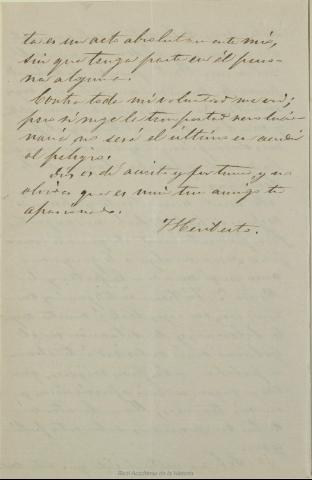 to es un acto absolutamente mío,
sin que tenga parte en él perso-
na alguna.
Contra toda mi voluntad me voí;
pero si ruge la tempestad revolucio-
naria no seré el último en acudir
al peligro.
Dios os dé acierto y fortuna, y no
olvides que es muy tuo amigo tu
apasionado.
Heriberto.
Real Academia de la Historia